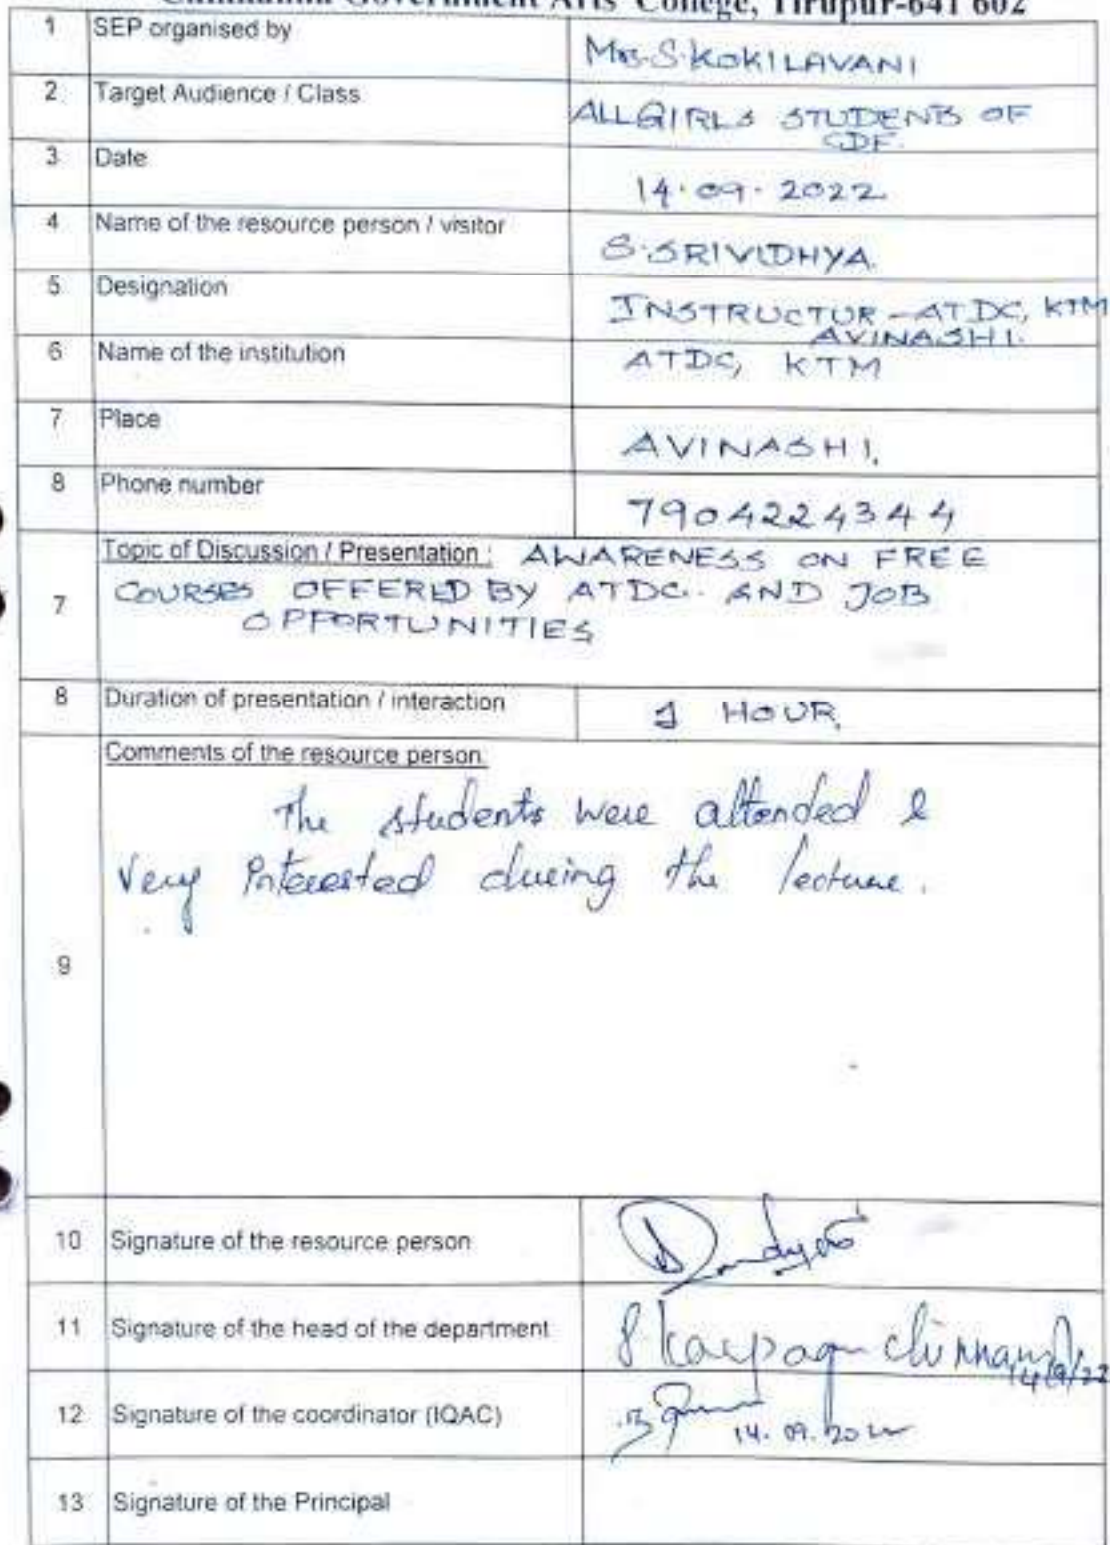 Government Arts College, Tirupur-641 602
1 SEP organised by Mrs.S.KOKILAVANI
2 Target Audience / Class ALL GIRLS STUDENTS OF
CDF.
3 Date 14.09.2022
4 Name of the resource person / visitor S.SRIVIDHYA.
5 Designation INSTRUCTUR - ATDC, KTM
AVINASHI.
6 Name of the institution ATDC, KTM
7 Place AVINASHI.
8 Phone number 7904224344
Topic of Discussion / Presentation : AWARENESS ON FREE
7 COURSES OFFERED BY ATDC. AND JOB
OPPORTUNITIES
8 Duration of presentation / interaction 1 HOUR.
Comments of the resource person:
The students were attended &
very interested during the lecture.
9
10 Signature of the resource person
11 Signature of the head of the department
14/9/22
12 Signature of the coordinator (IQAC)
14.09.2022
13 Signature of the Principal